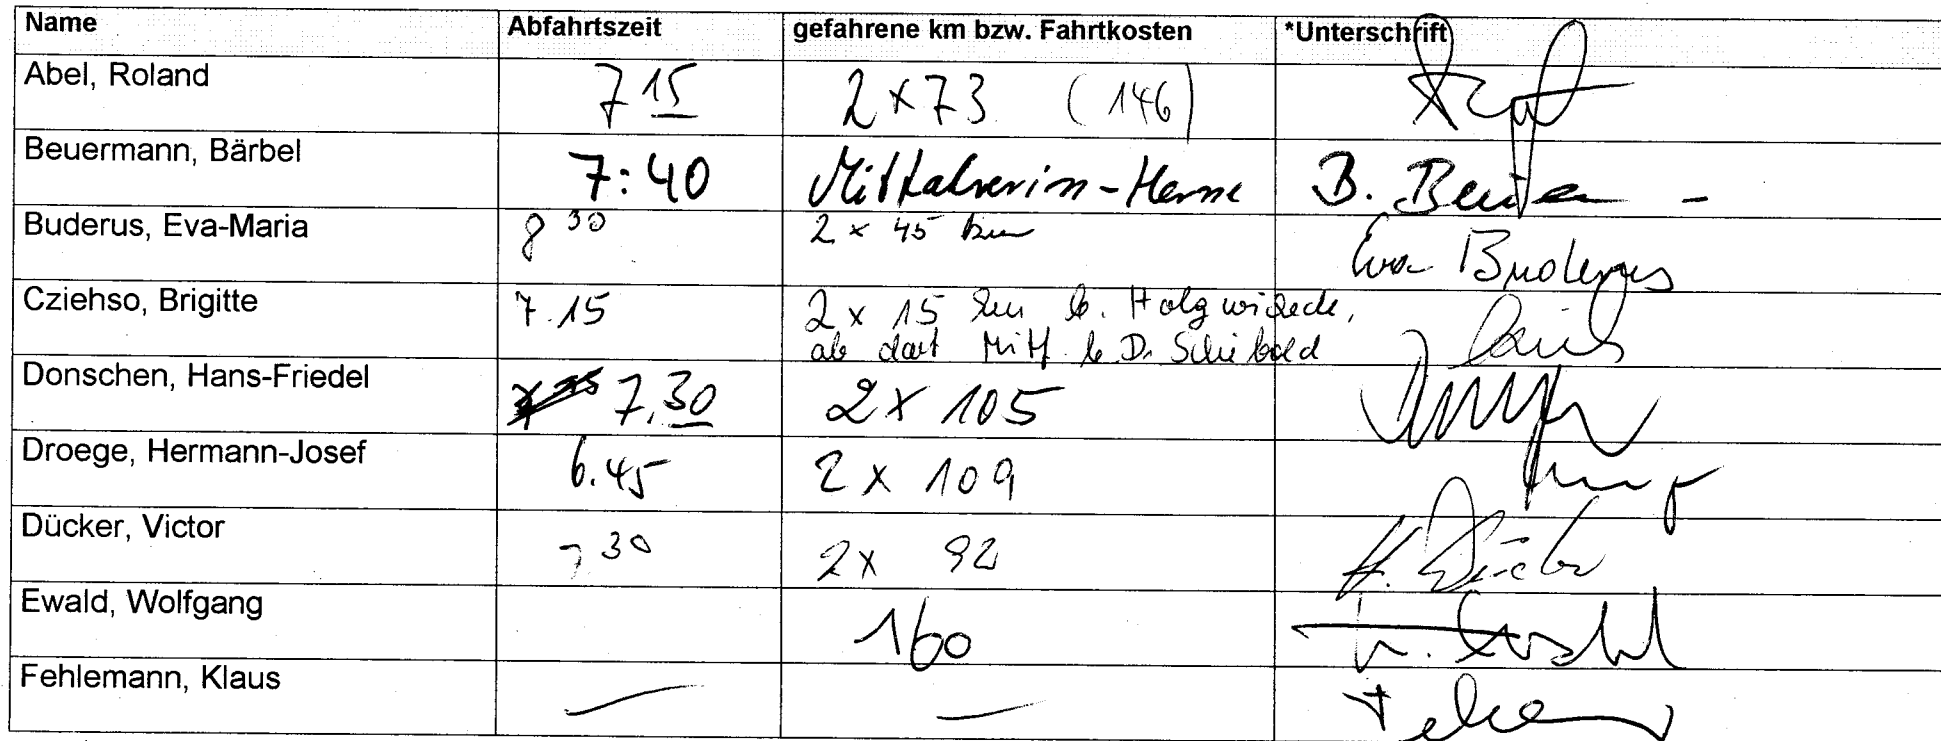 Name Abfahrtszeit gefahrene km bzw. Fahrtkosten *Unterschrift
Abel, Roland 7 15 2 x 73 (146)
Beuermann, Bärbel 7:40 -Herne B.
Buderus, Eva-Maria 8 30 2 x 45 km Eva Buderus
Cziehso, Brigitte 7.15 2 x 15 km b. Holzwickede,
ab dort Mitf. b Dr. Schiebold
Donschen, Hans-Friedel 7.30 2 x 105
Droege, Hermann-Josef 6.45 2 x 109
Dücker, Victor 7 30 2 x 92
Ewald, Wolfgang 160 W. Ewald
Fehlemann, Klaus — —